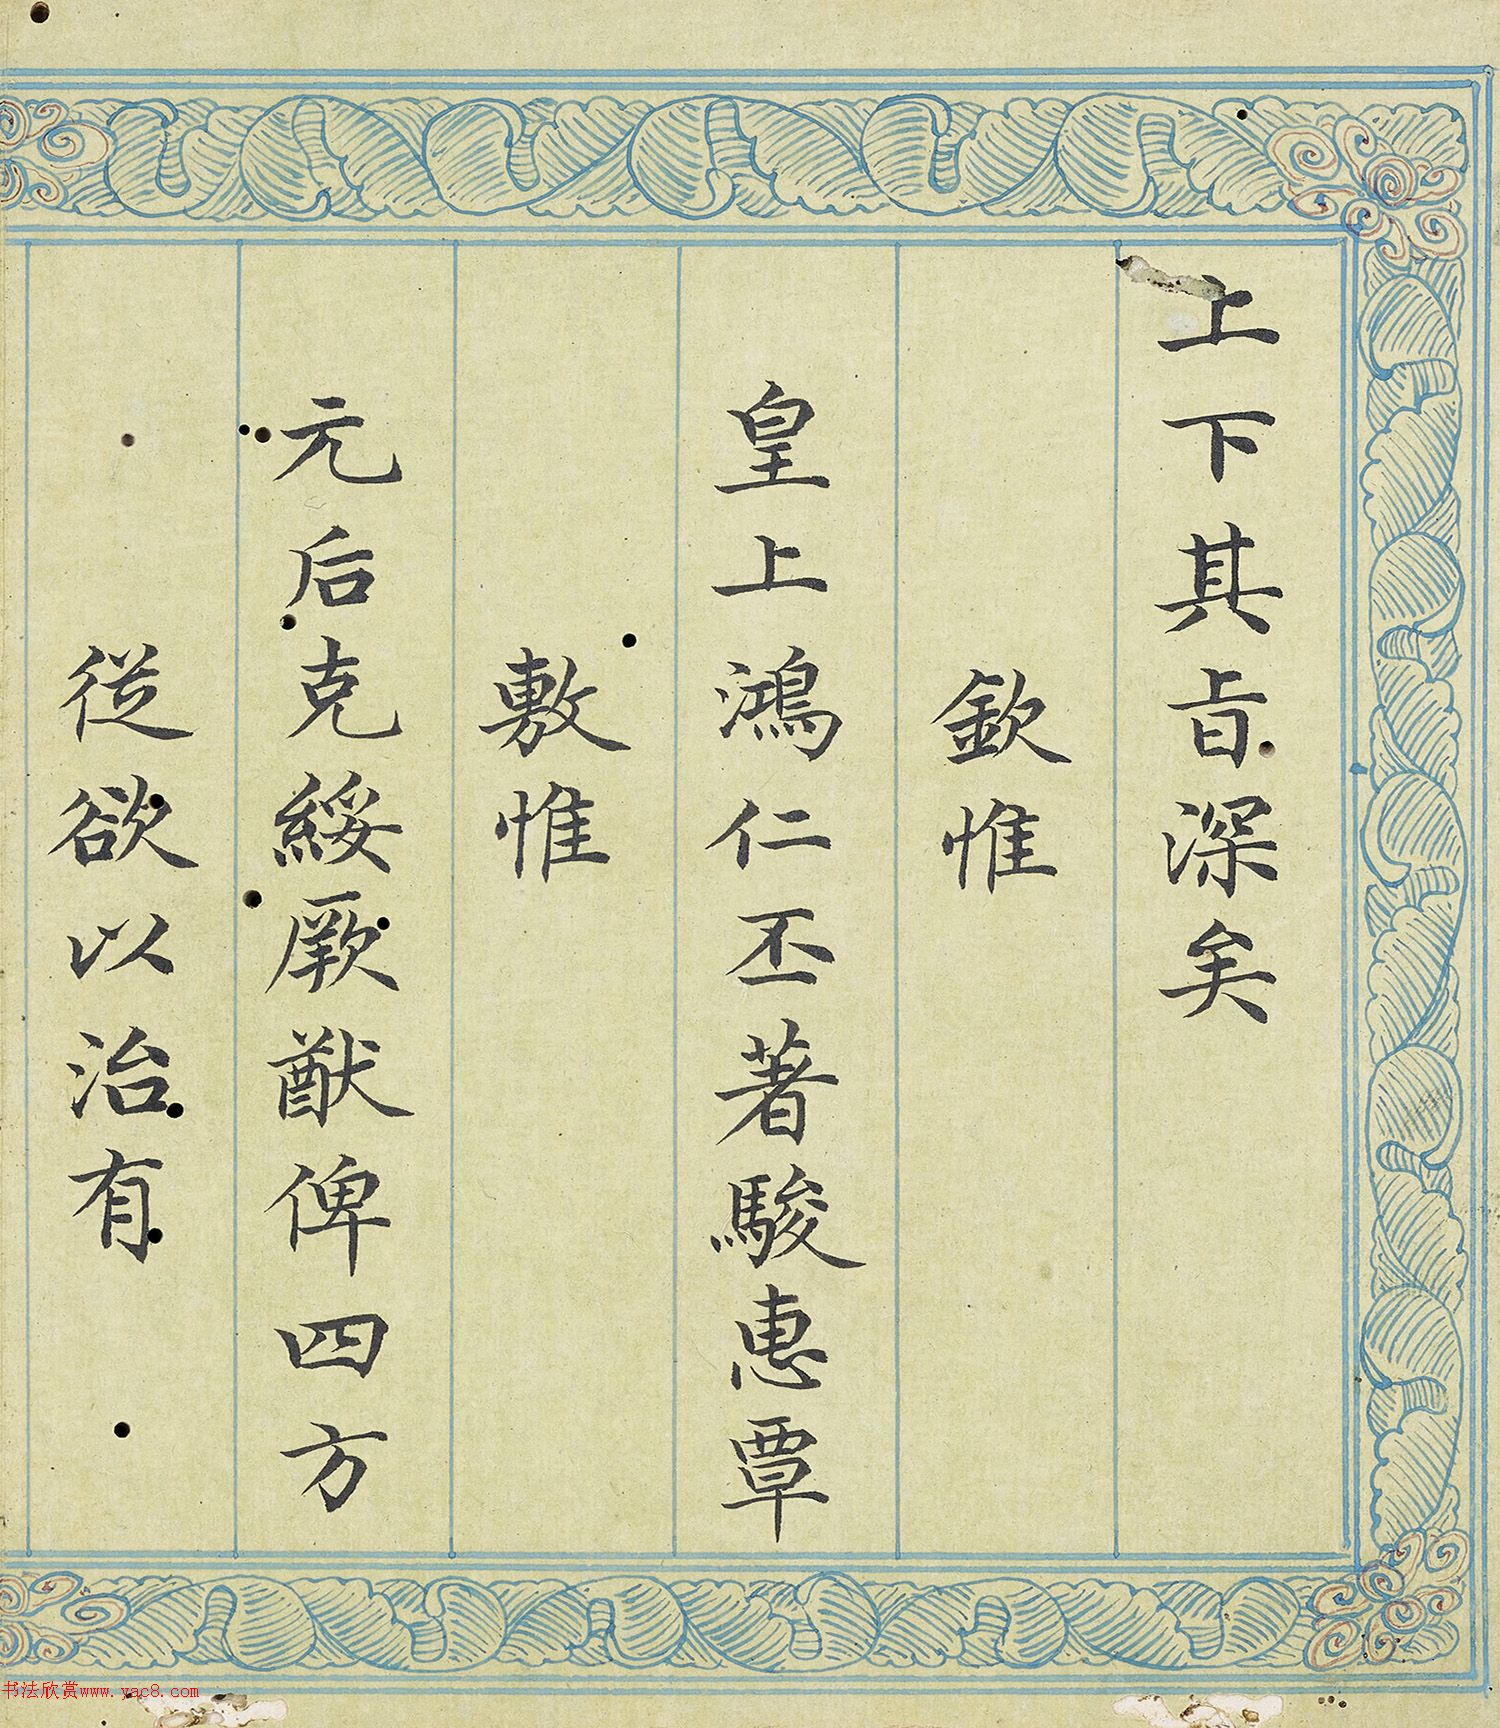 上下其旨深矣
欽惟
皇上鴻仁丕著駿惠覃
敷惟
元后克綏厥猷俾四方
從欲以治有
书法欣赏www.yac8.com